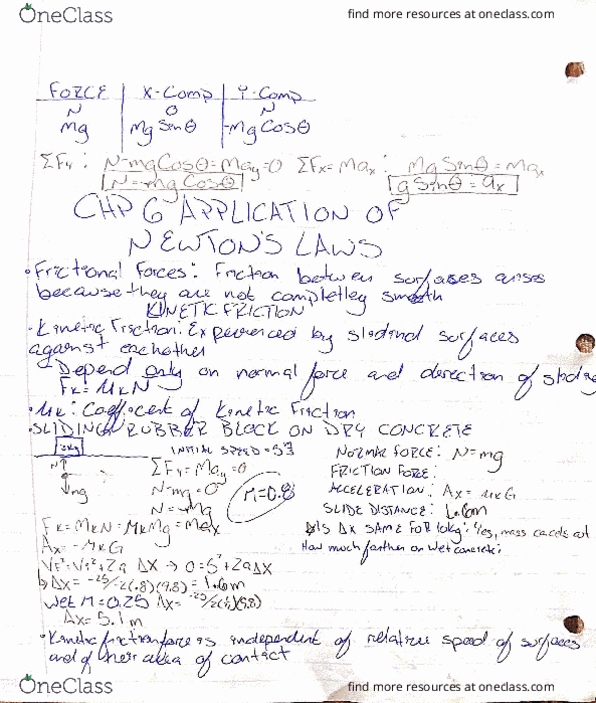 OneClass
find more resources at oneclass.com
FORCE X-Comp Y-Comp
N O N
mg MgSinΘ -mgCosΘ
ΣFy: N-mgCosΘ=May=0 ΣFx=Max: MgSinΘ=Max
N=mgCosΘ gSinΘ=ax
CHP 6 APPLICATION OF
NEWTON'S LAWS
•Frictional Forces: Friction between surfases arises
because they are not completley smooth
KINETIC FRICTION
•Kinetic Friction: Experienced by slidind surfaces
against eachother
Depend only on normal force and direction of sliding
Fk=MkN
•Mk: Coefficent of Kinetic Friction
•SLIDING RUBBER BLOCK ON DRY CONCRETE
INITIAL SPEED = NORMAL FORCE: N=mg
N ΣFy=May=0 FRICTION FORCE:
mg N-mg=0 M=0.8 ACCELERATION: Ax=MkG
N=mg SLIDE DISTANCE: 1.6m
Fk=MkN=MkMg=max Is ΔX SAME FOR 10kg: Yes, mass
Ax=-MkG How much farther on wet concrete:
Vf²=Vi²+2a ΔX → 0=5²+2aΔX
ΔX= -25/-2(.8)(9.8)=1.6m
Wet M=0.25 ΔX=
ΔX=5.1m
•Kinetic friction force is independent of relative speed of surfaces
and of their area of contact
OneClass
find more resources at oneclass.com